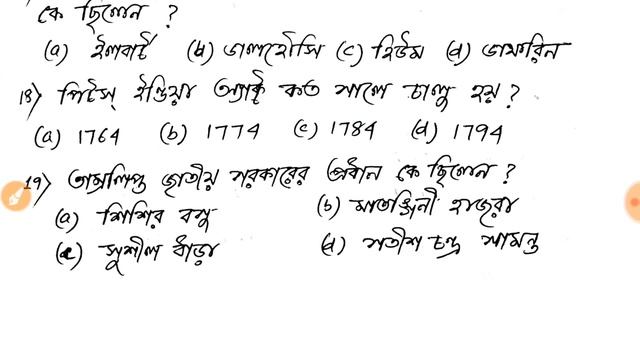 কে ছিলেন ?
(a) ইলবার্ট (b) ডালহৌসি (c) হিউম (d) ডাফরিন
18) পিটস্ ইন্ডিয়া অ্যাক্ট কত সালে চালু হয় ?
(a) 1764 (b) 1774 (c) 1784 (d) 1794
19) তাম্রলিপ্ত জাতীয় সরকারের প্রধান কে ছিলেন ?
(a) শিশির বসু (b) মাতঙ্গিনী হাজরা
(c) সুশীল ধাঁড়া (d) সতীশ চন্দ্র সামন্ত